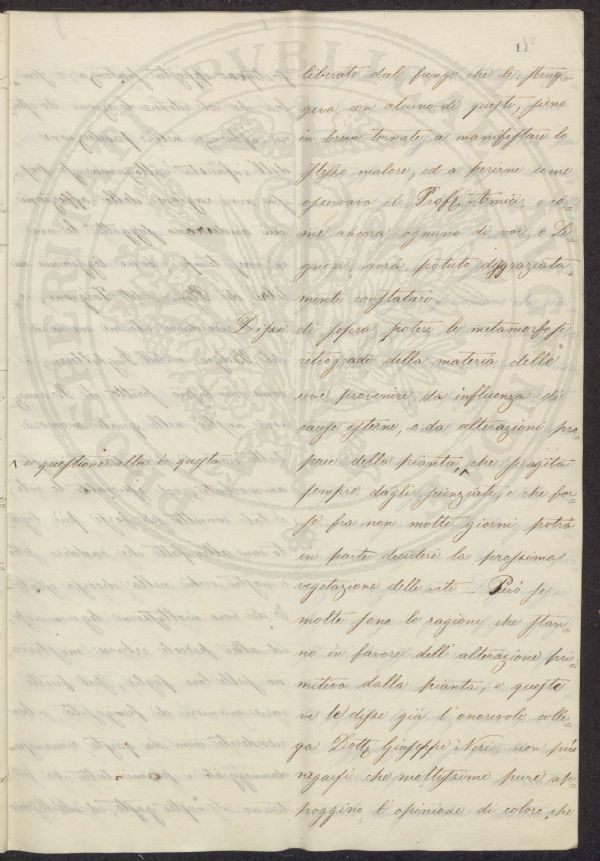 11
liberate dal fungo che le strug-
geva con alcuno di questi, sieno
in breve tornate a manifestare lo
stesso malore, ed a perirne come
osservava il Profr. Amici, e co-
me ancora ognuno di voi, o Si-
gnori, avrà potuto disgraziata-
mente constatare.
Dissi di sopra potere le metamorfosi
retrograde della materia delle
uve provenire da influenza di
cause esterne, o da alterazioni pro-
prie della pianta, ^ che si agita
^ e questione ella è questa
sempre dagli scienziati, e che for-
se fra non molti giorni potrà
in parte decidere la prossima
vegetazione delle viti _ Però se
molte sono le ragioni che stan-
no in favore dell'alterazione pri-
mitiva dalla pianta, e queste
ve le disse già l'onorevole colle-
ga Dottr. Giuseppe Neri, non può
negarsi che moltissime pure ap-
poggino l'opinione di coloro, che